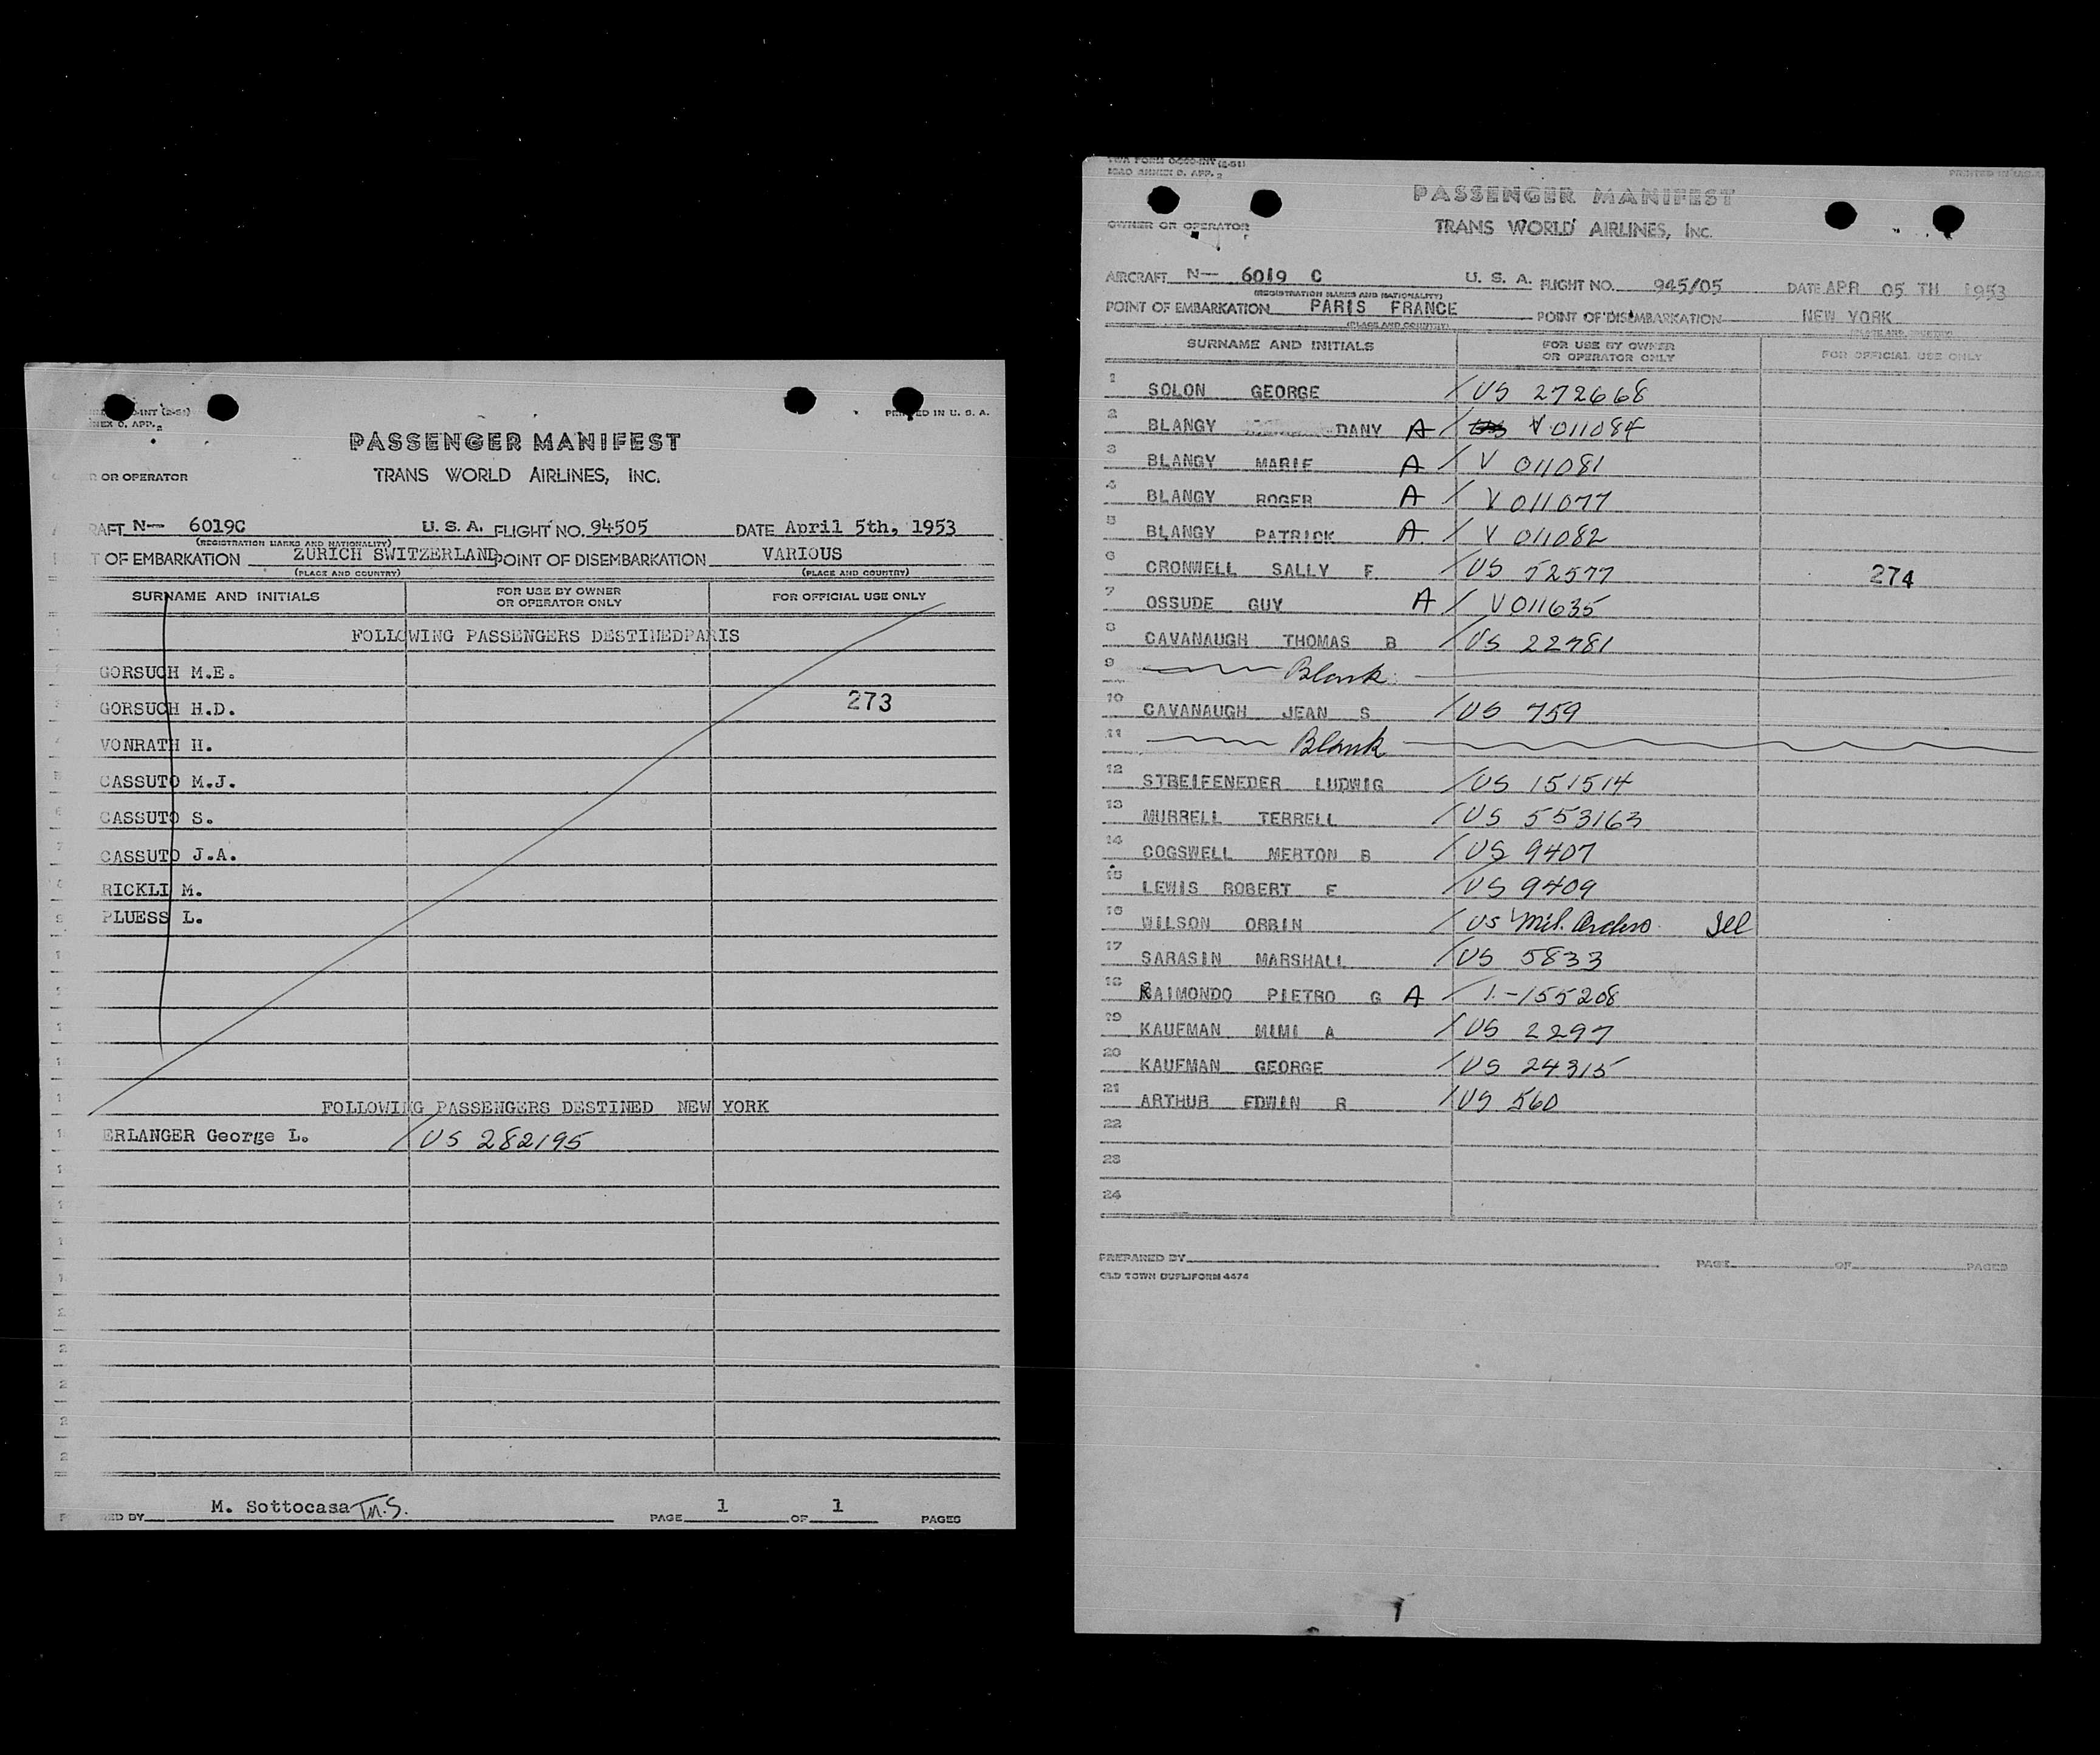 INT (2-51)
PRINTED IN U. S. A.
NEX D, APP. 2
PASSENGER MANIFEST
R OR OPERATOR
TRANS WORLD AIRLINES, INC.
RAFT N— 6019C U. S. A. FLIGHT NO. 94505 DATE April 5th, 1953
(REGISTRATION MARKS AND NATIONALITY)
T OF EMBARKATION ZURICH SWITZERLAND POINT OF DISEMBARKATION VARIOUS
(PLACE AND COUNTRY) (PLACE AND COUNTRY)
SURNAME AND INITIALS FOR USE BY OWNER OR OPERATOR ONLY FOR OFFICIAL USE ONLY
FOLLOWING PASSENGERS DESTINEDPARIS
GORSUCH M.E.
GORSUCH H.D. 273
VONRATH H.
CASSUTO M.J.
CASSUTO S.
CASSUTO J.A.
RICKLI M.
PLUESS L.
FOLLOWING PASSENGERS DESTINED NEW YORK
ERLANGER George L. / US 282195
M. Sottocasa
ED BY PAGE 1 OF 1 PAGES
TWA FORM (2-51)
ICAO ANNEX D, APP. 2
PRINTED IN U.S.A.
PASSENGER MANIFEST
OWNER OR OPERATOR
TRANS WORLD AIRLINES, INC.
AIRCRAFT N— 6019 C U. S. A. FLIGHT NO. 945/05 DATE APR 05 TH 1953
(REGISTRATION MARKS AND NATIONALITY)
POINT OF EMBARKATION PARIS FRANCE POINT OF DISEMBARKATION NEW YORK
(PLACE AND COUNTRY) (PLACE AND COUNTRY)
SURNAME AND INITIALS FOR USE BY OWNER OR OPERATOR ONLY FOR OFFICIAL USE ONLY
1 SOLON GEORGE / US 272668
2 BLANGY DANY A / V 011084
3 BLANGY MARIE A / V 011081
4 BLANGY ROGER A / V 011077
5 BLANGY PATRICK A / V 011082
6 CRONWELL SALLY F / US 52577 274
7 OSSUDE GUY A / V 011635
8 CAVANAUGH THOMAS B / US 22781
9 Blank
10 CAVANAUGH JEAN S / US 759
11 Blank
12 STREIFENEDER LUDWIG / US 151514
13 MURRELL TERRELL / US 553163
14 COGSWELL MERTON B / US 9407
15 LEWIS ROBERT E / US 9409
16 WILSON ORBIN / US Mil. Orders
17 SARASIN MARSHALL / US 5833
18 RAIMONDO PIETRO G A / 1-155208
19 KAUFMAN MIMI A / US 2297
20 KAUFMAN GEORGE / US 24315
21 ARTHUR EDWIN R / US 560
22
23
24
PREPARED BY PAGE OF PAGES
OLD TOWN DUPLIFORM 4474